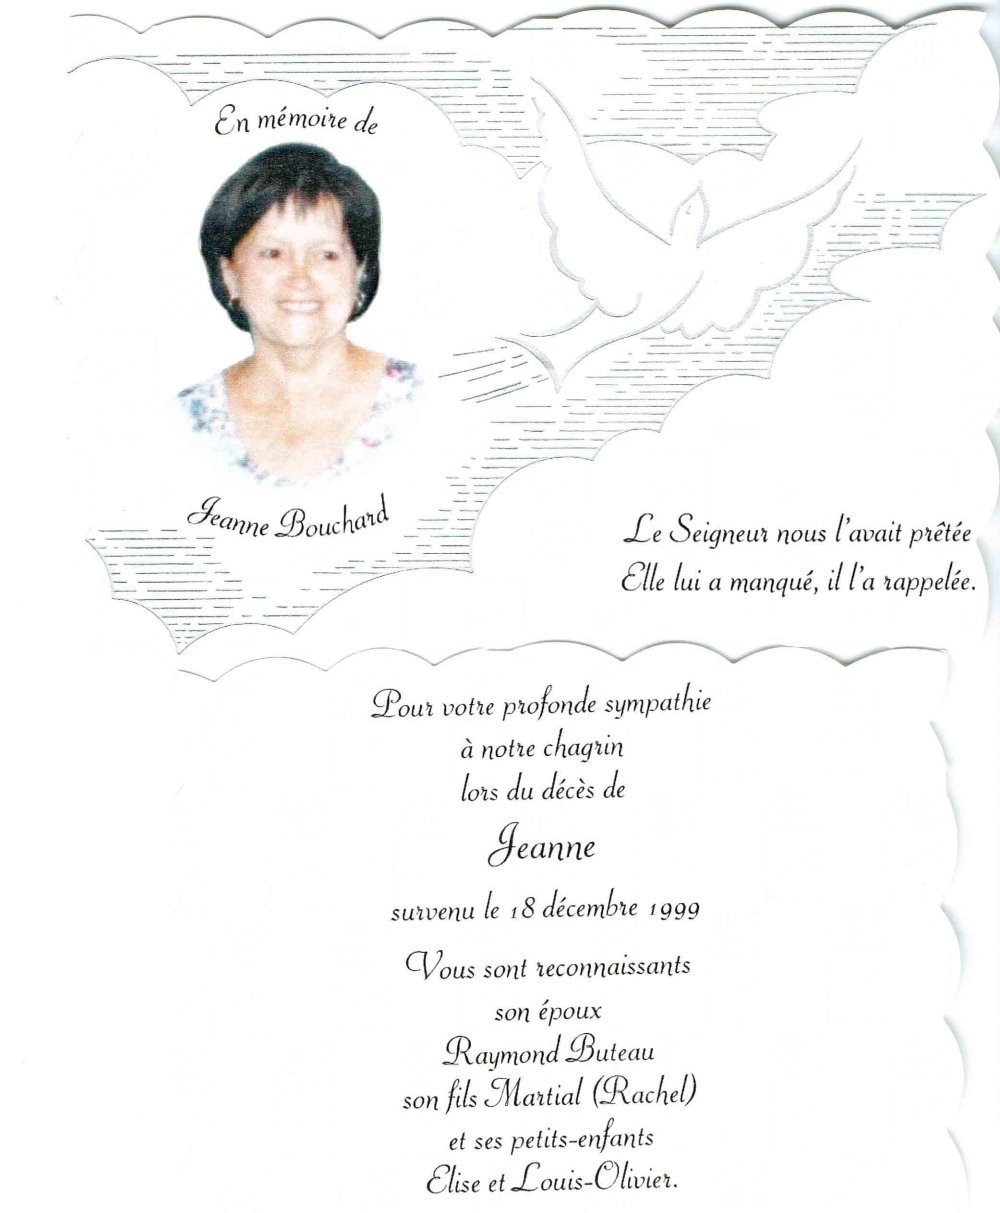 En mémoire de
Jeanne Bouchard
Le Seigneur nous l'avait prêtée
Elle lui a manqué, il l'a rappelée.
Pour votre profonde sympathie
à notre chagrin
lors du décès de
Jeanne
survenu le 18 décembre 1999
Vous sont reconnaissants
son époux
Raymond Buteau
son fils Martial (Rachel)
et ses petits-enfants
Elise et Louis-Olivier.